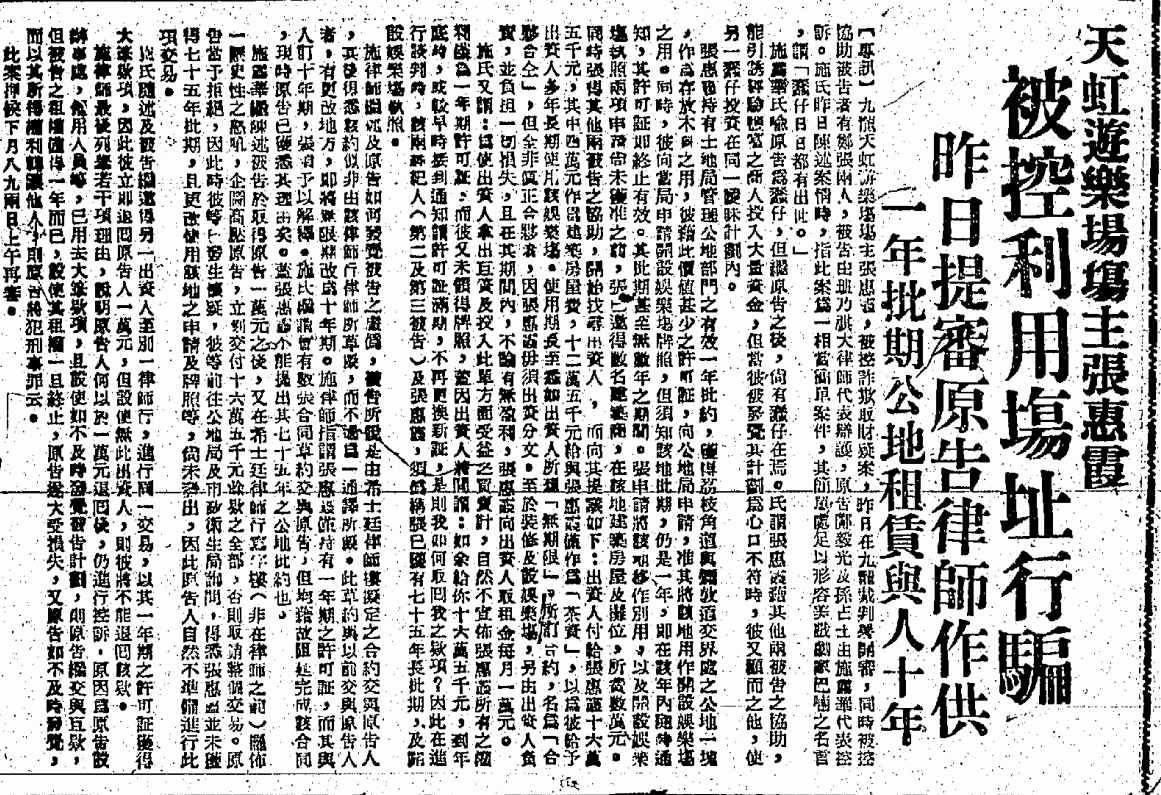 天虹遊樂場塲主張惠霞
被控利用塲址行騙
昨日提審原告律師作供
一年批期公地租賃與人十年
【專訊】九龍天虹遊樂塲塲主張惠霞，被控詐欺取財疑案，昨日在九龍裁判署開審，同時被控
協助被告者有鄭張兩人，被告由
大律師代表辯護，原告鄭
光及孫占士由施露華代表控
訴。施氏昨日陳述案情時，指此案為一相當簡單案件，其簡單處足以形容美戲劇家巴
之名言
，謂「蠢仔日日都有出世。」
施露華氏喻原告為蠢仔，但繼原告之後，尚有蠢仔在焉。氏謂張惠霞藉其他兩被告之協助
能引誘經驗豐富之商人投入大量資金，但當被彼發覺其計劃為心口不符時，彼又顧而之他，使
另一蠢仔投資在同一曖昧計劃內。
張惠霞持有土地局管理公地部門之有效一年批約，獲得荔枝角道與彌敦道交界處之公地一塊
，作為存放木料之用，彼藉此價值甚少之許可証，向公地局申請，准其將該地用作開設娛樂塲
之用。同時，彼向當局申請開設娛樂塲牌照，但須知該地批期，仍是一年，即在該年內隨時通
知，其許可証如終止有效。其批期甚至無數年之期間。張申請將該地移作別用，以及開設娛樂
塲執照兩項申請尚未獲准之前，張已邀得數名建築商，在該地建築房屋及攤位，所費數萬元。
同時張得其他兩被告之協助，開始找尋出資人，而向其提議如下：出資人付給張惠霞十六萬
五千元，其中四萬元作為建築房屋費，十二萬五千元給與張惠霞作為「茶資」，以為彼給予
出資人多年長期使用該娛樂塲。使用期長至悉如出資人所謂「無期限」，所訂合約，名為「合
夥合仝」，但全非真正合夥者，因張惠霞毋須出資分文。至於裝修及設娛樂塲，另由出資人負
責，並負担一切損失，且在其期間內，不論有無盈利，張惠霞向出資人取租金每月一萬元。
施氏又謂：為使出資人拿出巨資及投入此單方面受益之買賣計，自然不宜佈張惠霞所有之權
利僅為一年期許可証，而彼又未領得牌照，蓋因出資人將問謂：如余給你十六萬五千元，到年
底時，或較早時接到通知謂許可証滿期，不再更換新証，是則我如何取回我之欵項？因此在進
行談判時，該兩經紀人（第二及第三被告）及張惠霞，須偽稱張已獲有七十五年長批期，及開
設娛樂塲執照。
施律師繼述及原告如何發覺被告之虛偽，被告所提是由希士廷律師樓擬定之合約交與原告人
，其後得悉該約似非由該律師行律師所草擬，而不過為一通譯所擬。此草約與以前交與原告人
者，有更改地方，即將無限期改為十年期。施律師指謂張惠霞祇持有一年期之許可証，而其與
人訂十年期，張須予以解釋。施氏繼謂曾有數張合同草約交與原告，但地藉故阻延完成該合同
，現時原告已獲悉其理由矣。蓋張惠霞不能提出其七十五年之公地批約也。
施露華繼陳述被告於取得原告一萬元之後，又在希士廷律師行寫字樓（非在律師之前）噩佈
一歷史性之怒吼，企圖高壓原告，立刻交付十六萬五千元餘欵之全部，否則取銷整個交易。原
告當予拒絕，因此時彼等已發生懷疑，彼等前往公地局及市政衛生局詢問，得悉張惠霞並未獲
得七十五年批期，且更改使用該地之申請及牌照等，尚未發出，因此原告人自然不準備進行此
項交易。
施氏隨述及被告繼邀得另一出資人至別一律師行，進行同一交易，以其一年期之許可証獲得
大筆欵項，因此彼立即退回原告人一萬元，但設使無此出資人，則彼將不能退回該欵。
施律師最後列舉若干項理由，說明原告人何以於一萬元退回後，仍進行控訴。原因為原告設
辦事處，僱用人員等，已用去大筆欵項，且設使如不及時發覺被告計劃，則原告繼交與巨欵，
但被告之租權僅得一年而已，設使其租權一旦終止，原告遂大受損失，又原告如不及時發覺，
而以其所得權利轉讓他人，則原告將犯刑事罪云。
此案押候下月八九兩日上午再審。